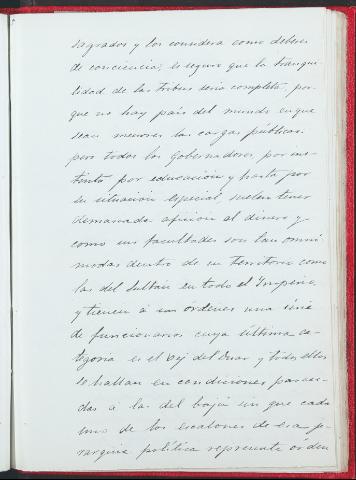 sagrados y los considera como deberes
de conciencia, es seguro que la tranqui-
lidad de las tribus seria completa, por
que no hay pais del mundo en que
sean menores las cargas públicas:
pero todos los gobernadores, por ins-
tinto por educación y hasta por
su situación especial, suelen tener
demasiada afición al dinero y
como sus facultades son tan omni-
modas dentro de su territorio como
las del Sultan en todo el Imperio,
y tienen a sus órdenes una série
de funcionarios cuya última ca-
tegoria es el del Duar y todos ellos
se hallan en condiciones pareci-
das á la del bajá sin que cada
uno de los escalones de esa
política represente órden